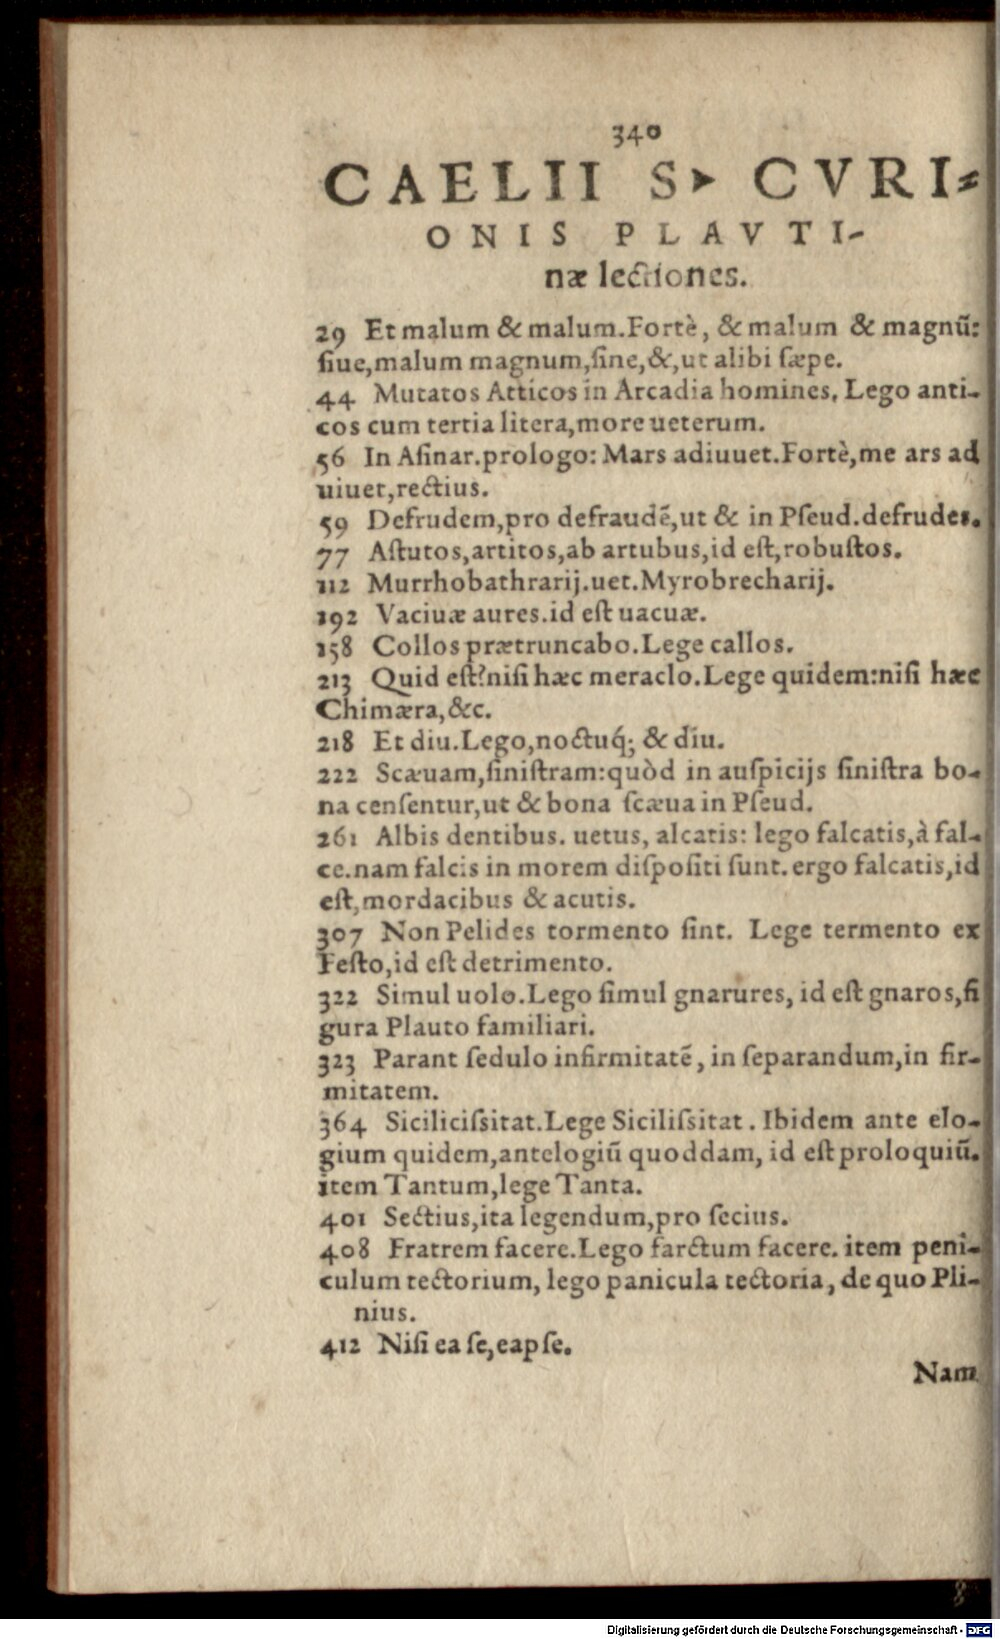 340
CAELII S. CVRI-
ONIS PLAVTI-
næ lectiones.
29 Et malum & malum. Fortè, & malum & magnū:
ſiue, malum magnum, ſine, &, ut alibi ſæpe.
44 Mutatos Atticos in Arcadia homines. Lego anti-
cos cum tertia litera, more ueterum.
56 In Aſinar. prologo: Mars adiuuet. Fortè, me ars ad
uiuet, rectius.
59 Defrudem, pro defraudē, ut & in Pſeud. defrudes.
77 Aſtutos, artitos, ab artubus, id eſt, robuſtos.
112 Murrhobathrarij. uet. Myrobrecharij.
192 Vaciuæ aures. id eſt uacuæ.
158 Collos prætruncabo. Lege callos.
213 Quid eſt? niſi hæc meraclo. Lege quidem: niſi hæc
Chimæra, &c.
218 Et diu. Lego, noctuq́; & diu.
222 Scæuam, ſiniſtram: quòd in auſpicijs ſiniſtra bo-
na cenſentur, ut & bona ſcæua in Pſeud.
261 Albis dentibus. uetus, alcatis: lego falcatis, à fal-
ce. nam falcis in morem diſpoſiti ſunt. ergo falcatis, id
eſt, mordacibus & acutis.
307 Non Pelides tormento ſint. Lege termento ex
Feſto, id eſt detrimento.
322 Simul uolo. Lego ſimul gnarures, id eſt gnaros, fi
gura Plauto familiari.
323 Parant ſedulo infirmitatē, in ſeparandum, in fir-
mitatem.
364 Siciliciſsitat. Lege Siciliſsitat. Ibidem ante elo-
gium quidem, antelogiū quoddam, id eſt proloquiū.
item Tantum, lege Tanta.
401 Sectius, ita legendum, pro ſecius.
408 Fratrem facere. Lego farctum facere. item peni-
culum tectorium, lego panicula tectoria, de quo Pli-
nius.
412 Niſi ea ſe, eapſe.
Nam
Digitalisierung gefördert durch die Deutsche Forschungsgemeinschaft - DFG